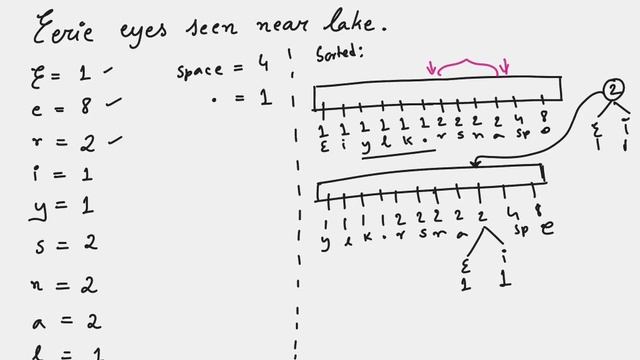 Eerie eyes seen near lake.
E = 1
e = 8
r = 2
i = 1
y = 1
s = 2
n = 2
a = 2
l = 1
space = 4
. = 1
Sorted:
1 1 1 1 1 1 2 2 2 2 4 8
E i y l k . r s n a sp e
2
E i
1 1
1 1 1 1 2 2 2 2 2 4 8
y l k . r s n a sp e
E i
1 1